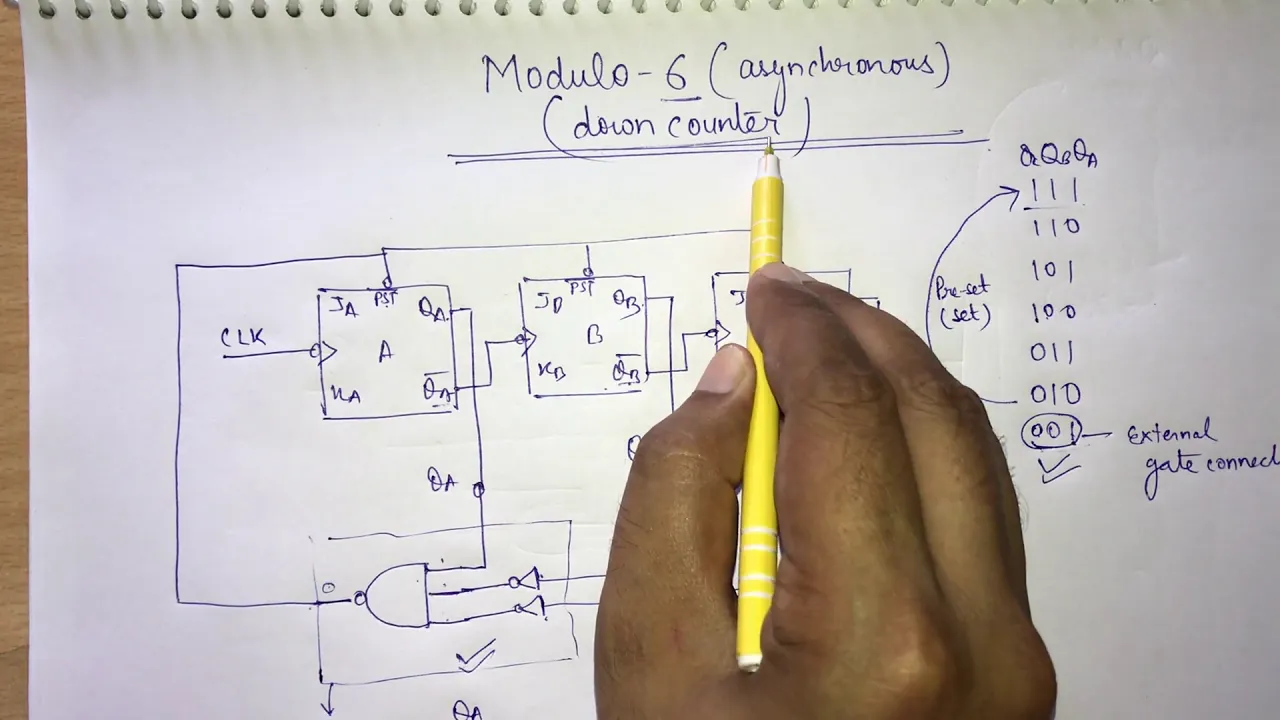 Modulo-6 (asynchronous)
(down counter)
QC QB QA
111
110
101
100
011
010
001 — External
gate connec
Pre-set
(set)
CLK
JA PST QA
A
KA Q̅A̅
PST QB
B
KB Q̅B̅
J
QA
0
QA